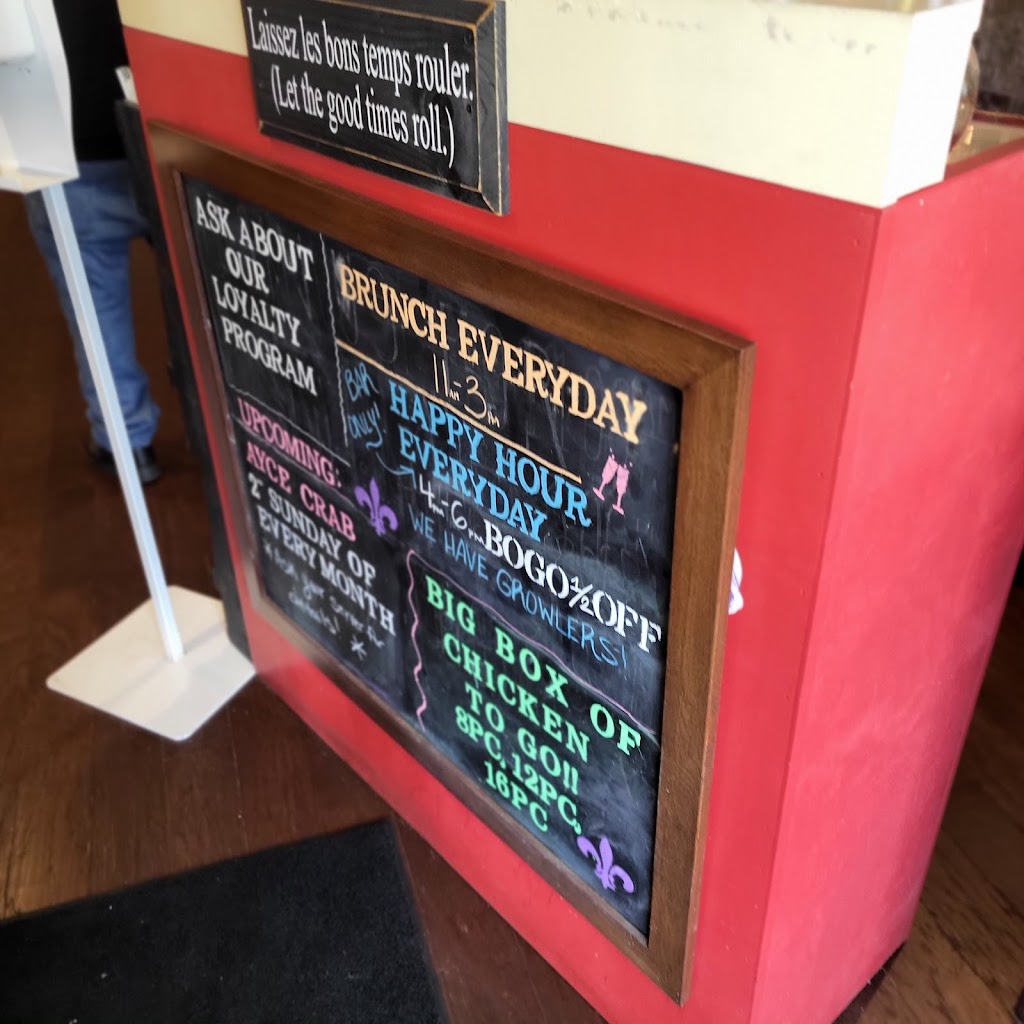 Laissez les bons temps rouler.
(Let the good times roll.)
ASK ABOUT
OUR
LOYALTY
PROGRAM
UPCOMING:
AYCE CRAB
2nd SUNDAY OF
EVERY MONTH
*Ask your server for
details! *
BRUNCH EVERYDAY
11AM-3PM
BAR
ONLY!
HAPPY HOUR
EVERYDAY
4PM-6PM BOGO 1/2 OFF
WE HAVE GROWLERS!
BIG BOX OF
CHICKEN
TO GO!!
8PC, 12PC,
16PC